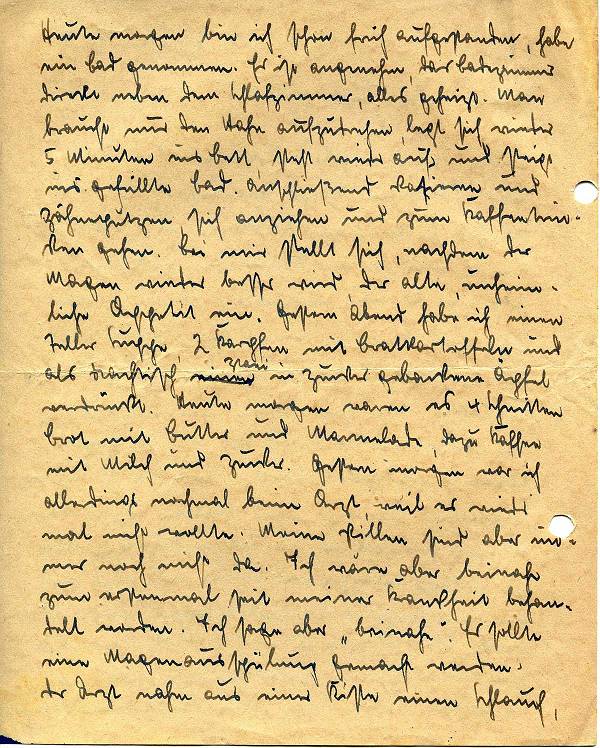 Heute morgen bin ich schon früh aufgestanden, habe
ein Bad genommen. Es ist angenehm, das Badezimmer
direkt neben dem Schlafzimmer, alles geheizt. Man
braucht nur den Hahn aufzudrehen, legt sich wieder
5 Minuten ins Bett, steht wieder auf und steigt
ins gefüllte Bad. Anschließend rasieren und
Zähneputzen, sich anziehen und zum Kaffeetrin-
ken gehen. Bei mir stellt sich, nachdem der
Magen wieder besser wird, der alte, unheim-
liche Appetit ein. Gestern Abend habe ich einen
Teller Suppe, 2 Karpfen mit Bratkartoffeln und
als Nachtisch zwei in Zucker gebackene Äpfel
verdrückt. Heute morgen waren es 4 Schnitten
Brot mit Butter und Marmelade, dazu Kaffee
mit Milch und Zucker. Gestern morgen war ich
allerdings nochmal beim Arzt, weil es wieder
mal nicht wollte. Meine Pillen sind aber im-
mer noch nicht da. Ich wäre aber beinahe
zum erstenmal seit meiner Krankheit behan-
delt worden. Ich sage aber „beinahe“. Es sollte
eine Magenausspülung gemacht werden.
Der Arzt nahm aus einer Kiste einen Schlauch,